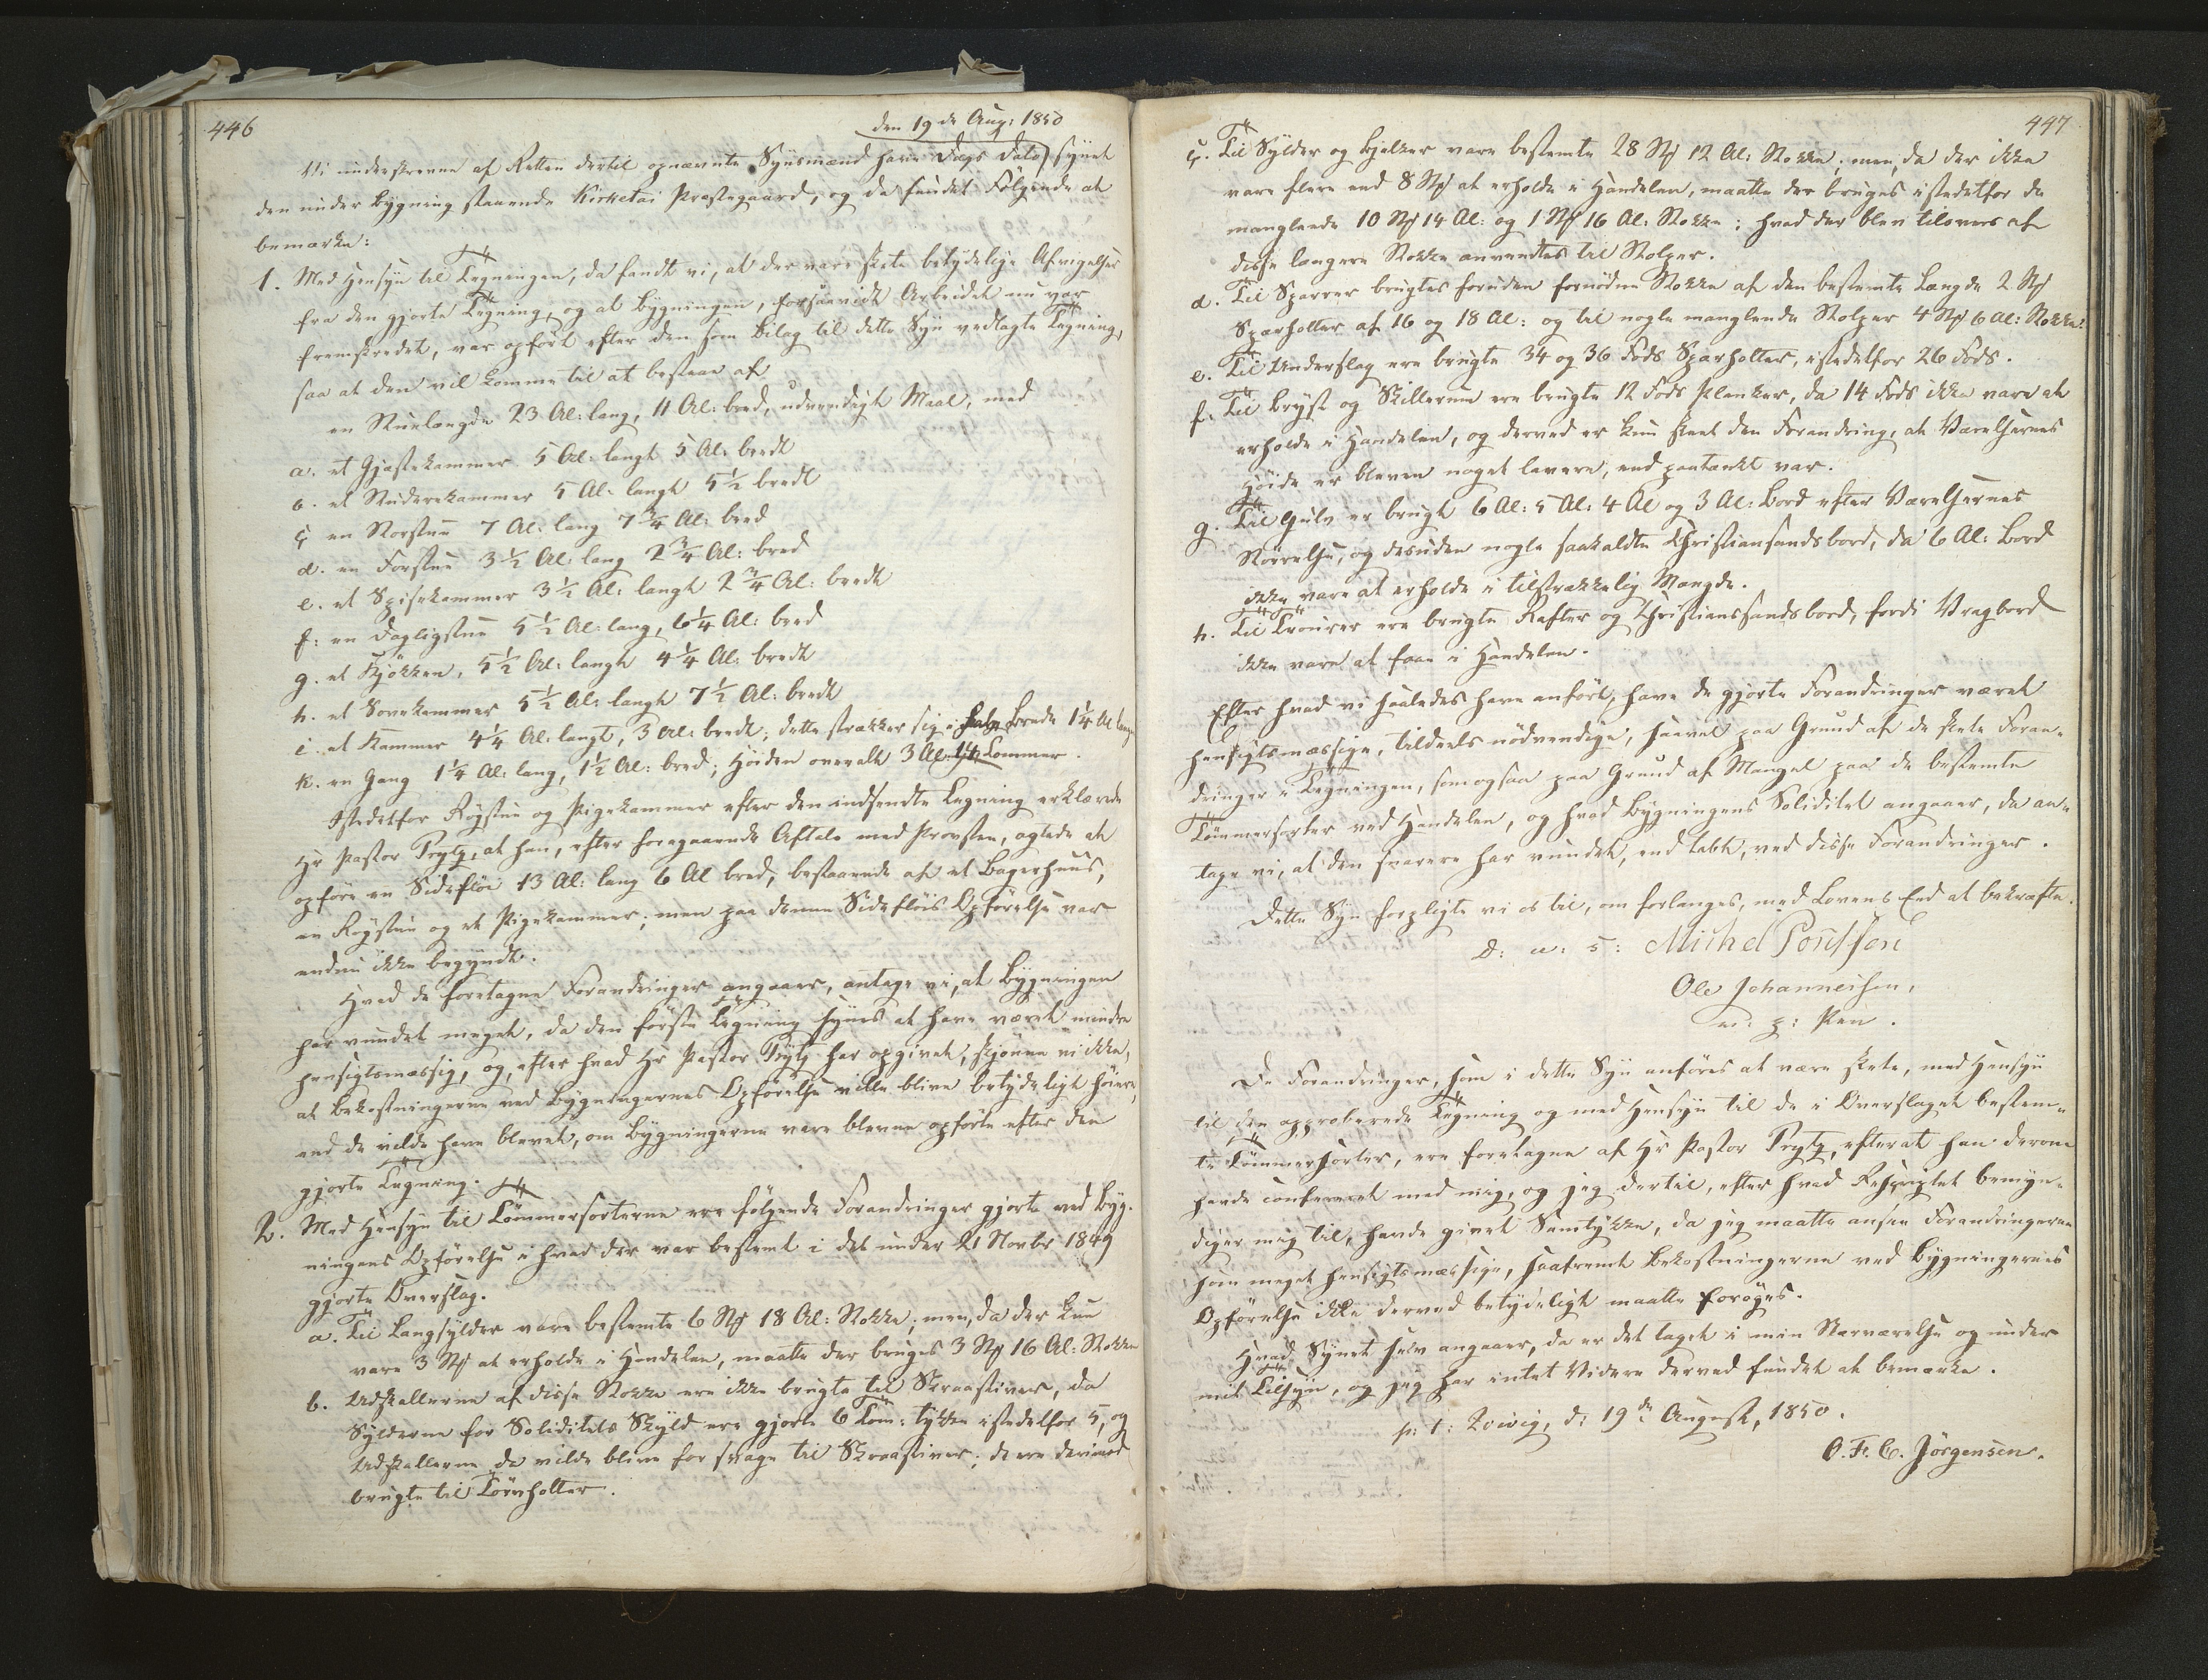 446
den 19de Aug: 1850
Vi underskrevne af Retten dertil opnævnte Synsmænd have Dags Dato synet
den under Bygning staaende Kirketai Præstegaard, og da fundet Følgende at
bemærke:
1. Med Hensyn til Tegningen, da fandt vi, at der vare skete betydelige Afvigelser
fra den gjorte Tegning, og at Bygningen, forsaavidt Arbeidet nu var
fremskredet, var opført efter den som Bilag til dette Syn vedlagte Tegning,
saa at den vil komme til at bestaae af
en Stuelængde 23 Al: lang, 11 Al: bred, udvendigt Maal, med
a. et Gjæstekammer 5 Al: langt 5 Al: bredt
b. et Studerekammer 5 Al: langt 5 1/2 bredt
c. en Storstue 7 Al: lang 7 3/4 Al: bred
d. en Forstue 3 1/2 Al: lang 2 3/4 Al: bred
e. et Spisekammer 3 1/2 Al: langt 2 3/4 Al: bredt
f: en Dagligstue 5 1/2 Al: lang, 6 1/4 Al: bred
g. et Kjøkken, 5 1/2 Al: langt 4 1/4 Al: bredt
h. et Sovekammer 5 1/2 Al: langt 7 1/2 Al: bredt
i. et Kammer 4 1/4 Al: langt, 3 Al: bredt; dette strækker sig i halv Brede 1 1/4 Al længer
k. en Gang 1 1/4 Al: lang, 1 1/2 Al: bred; Høiden overalt 3 Al: Tommer.
Istedetfor Røgstue og Pigekammer efter den indsendte Tegning erklærede
Hr Pastor Prytz, at han, efter foregaaende Aftale med Provsten, agtede at
opføre en Sidefløi 13 Al: lang 6 Al bred, bestaaende af et Bagerhuus,
en Røgstue og et Pigekammer; men paa denne Sidefløis Opførelse var
endnu ikke begyndt.
Hvad de foretagne Forandringer angaaer, antage vi, at Bygningen
har vundet meget, da den første Tegning synes at have været mindre
hensigtsmæssig, og, efter hvad Hr Pastor Prytz har opgivet, skjønne vi ikke,
at Bekostningerne ved Bygningernes Opførelse ville blive betydeligt høiere,
end de vilde have blevet, om Bygningerne vare blevne opførte efter den
gjorte Tegning.
2. Med Hensyn til Tømmersorterne ere følgende Forandringer gjorte ved Byg-
ningens Opførelse i hvad der var bestemt i det under 21 Novbr 1849
gjorte Overslag.
a. Til Langsylder vare bestemte 6 Stk 18 Al: Stokke; men, da der kun
vare 3 Stk at erholde i Handelen, maatte der bruges 3 Stk 16 Al: Stokke
b. Udskallerne af disse Stokke ere ikke brugte til Skraastiver, da
Sylderne for Soliditets Skyld ere gjorte 6 Tom: tykke istedetfor 5, og
Udskallerne da vilde blive for svage til Skraastiver; de ere derimod
brugte til Tørnholter.
447
c. Til Sylder og Bjelker vare bestemte 28 Stk 12 Al: Stokke; men, da der ikke
vare flere end 8 Stk at erholde i Handelen, maatte der bruges istedetfor de
manglende 10 Stk 14 Al: og 1 Stk 16 Al: Stokke; hvad der blev tilovers af
disse længere Stokke anvendtes til Stolper.
d. Til Sparrer brugtes foruden fornødne Stokke af den bestemte Længde 2 Stk
Sparholter af 16 og 18 Al: og til nogle manglende Stolper 4 Stk 6 Al: Stokke.
e. Til Underslag ere brugte 34 og 36 Fods Sparholter, istedetfor 26 Fods.
f. Til Bryst og Skillerum ere brugte 12 Fods Planker, da 14 Fods ikke vare at
erholde i Handelen, og derved er kun skeet den Forandring, at Værelsernes
Høide er bleven noget lavere, end paatænkt var.
g. Til Gulv er brugt 6 Al: 5 Al: 4 Al og 3 Al: Bord efter Værelsernes
Størrelse, og desuden nogle saakaldte Christiansandsbord, da 6 Al: Bord
ikke vare at erholde i tilstrækkelig Mængde.
h. Til Trourer ere brugte Rafter og Christianssandsbord, fordi Vragbord
ikke vare at faae i Handelen.
Efter hvad vi saaledes have anført, have de gjorte Forandringer været
hensigtsmæssige, tildeels nødvendige, saavel paa Grund af de skete Foran-
dringer i Tegningen, som ogsaa paa Grund af Mangel paa de bestemte
Tømmersorter ved Handelen, og hvad Bygningens Soliditet angaaer, da an-
tage vi, at den snarere har vundet, end tabt, ved disse Forandringer.
Dette Syn forpligte vi os til, om forlanges, med Lovens Eed at bekræfte.
D: u: s: Michel
Ole Johannesen,
m: p: Pen.
De Forandringer, som i dette Syn anføres at være skete, med Hensyn
til den approberede Tegning og med Hensyn til de i Overslaget bestem-
te Tømmersorter, ere foretagne af Hr Pastor Prytz, efterat han derom
havde confereret med mig, og jeg dertil, efter hvad Rescriptet bemyn-
diger mig til, havde givet Samtykke, da jeg maatte ansee Forandringerne
som meget hensigtsmæssige, saafremt Bekostningerne ved Bygningernes
Opførelse ikke derved betydeligt maatte forøges.
Hvad Synet selv angaaer, da er det taget i min Nærværelse og under
mit Tilsyn, og jeg har intet Videre derved fundet at bemærke.
p: t: d: 19de August, 1850.
O. F. C. Jörgensen.